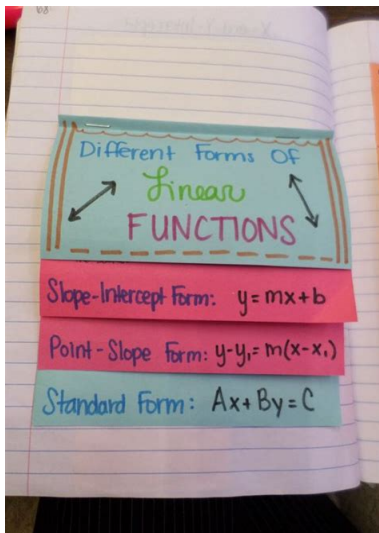 Different Forms Of
Linear
FUNCTIONS
Slope-Intercept Form: y = mx + b
Point-Slope Form: y-y₁ = m(x-x₁)
Standard Form: Ax + By = C